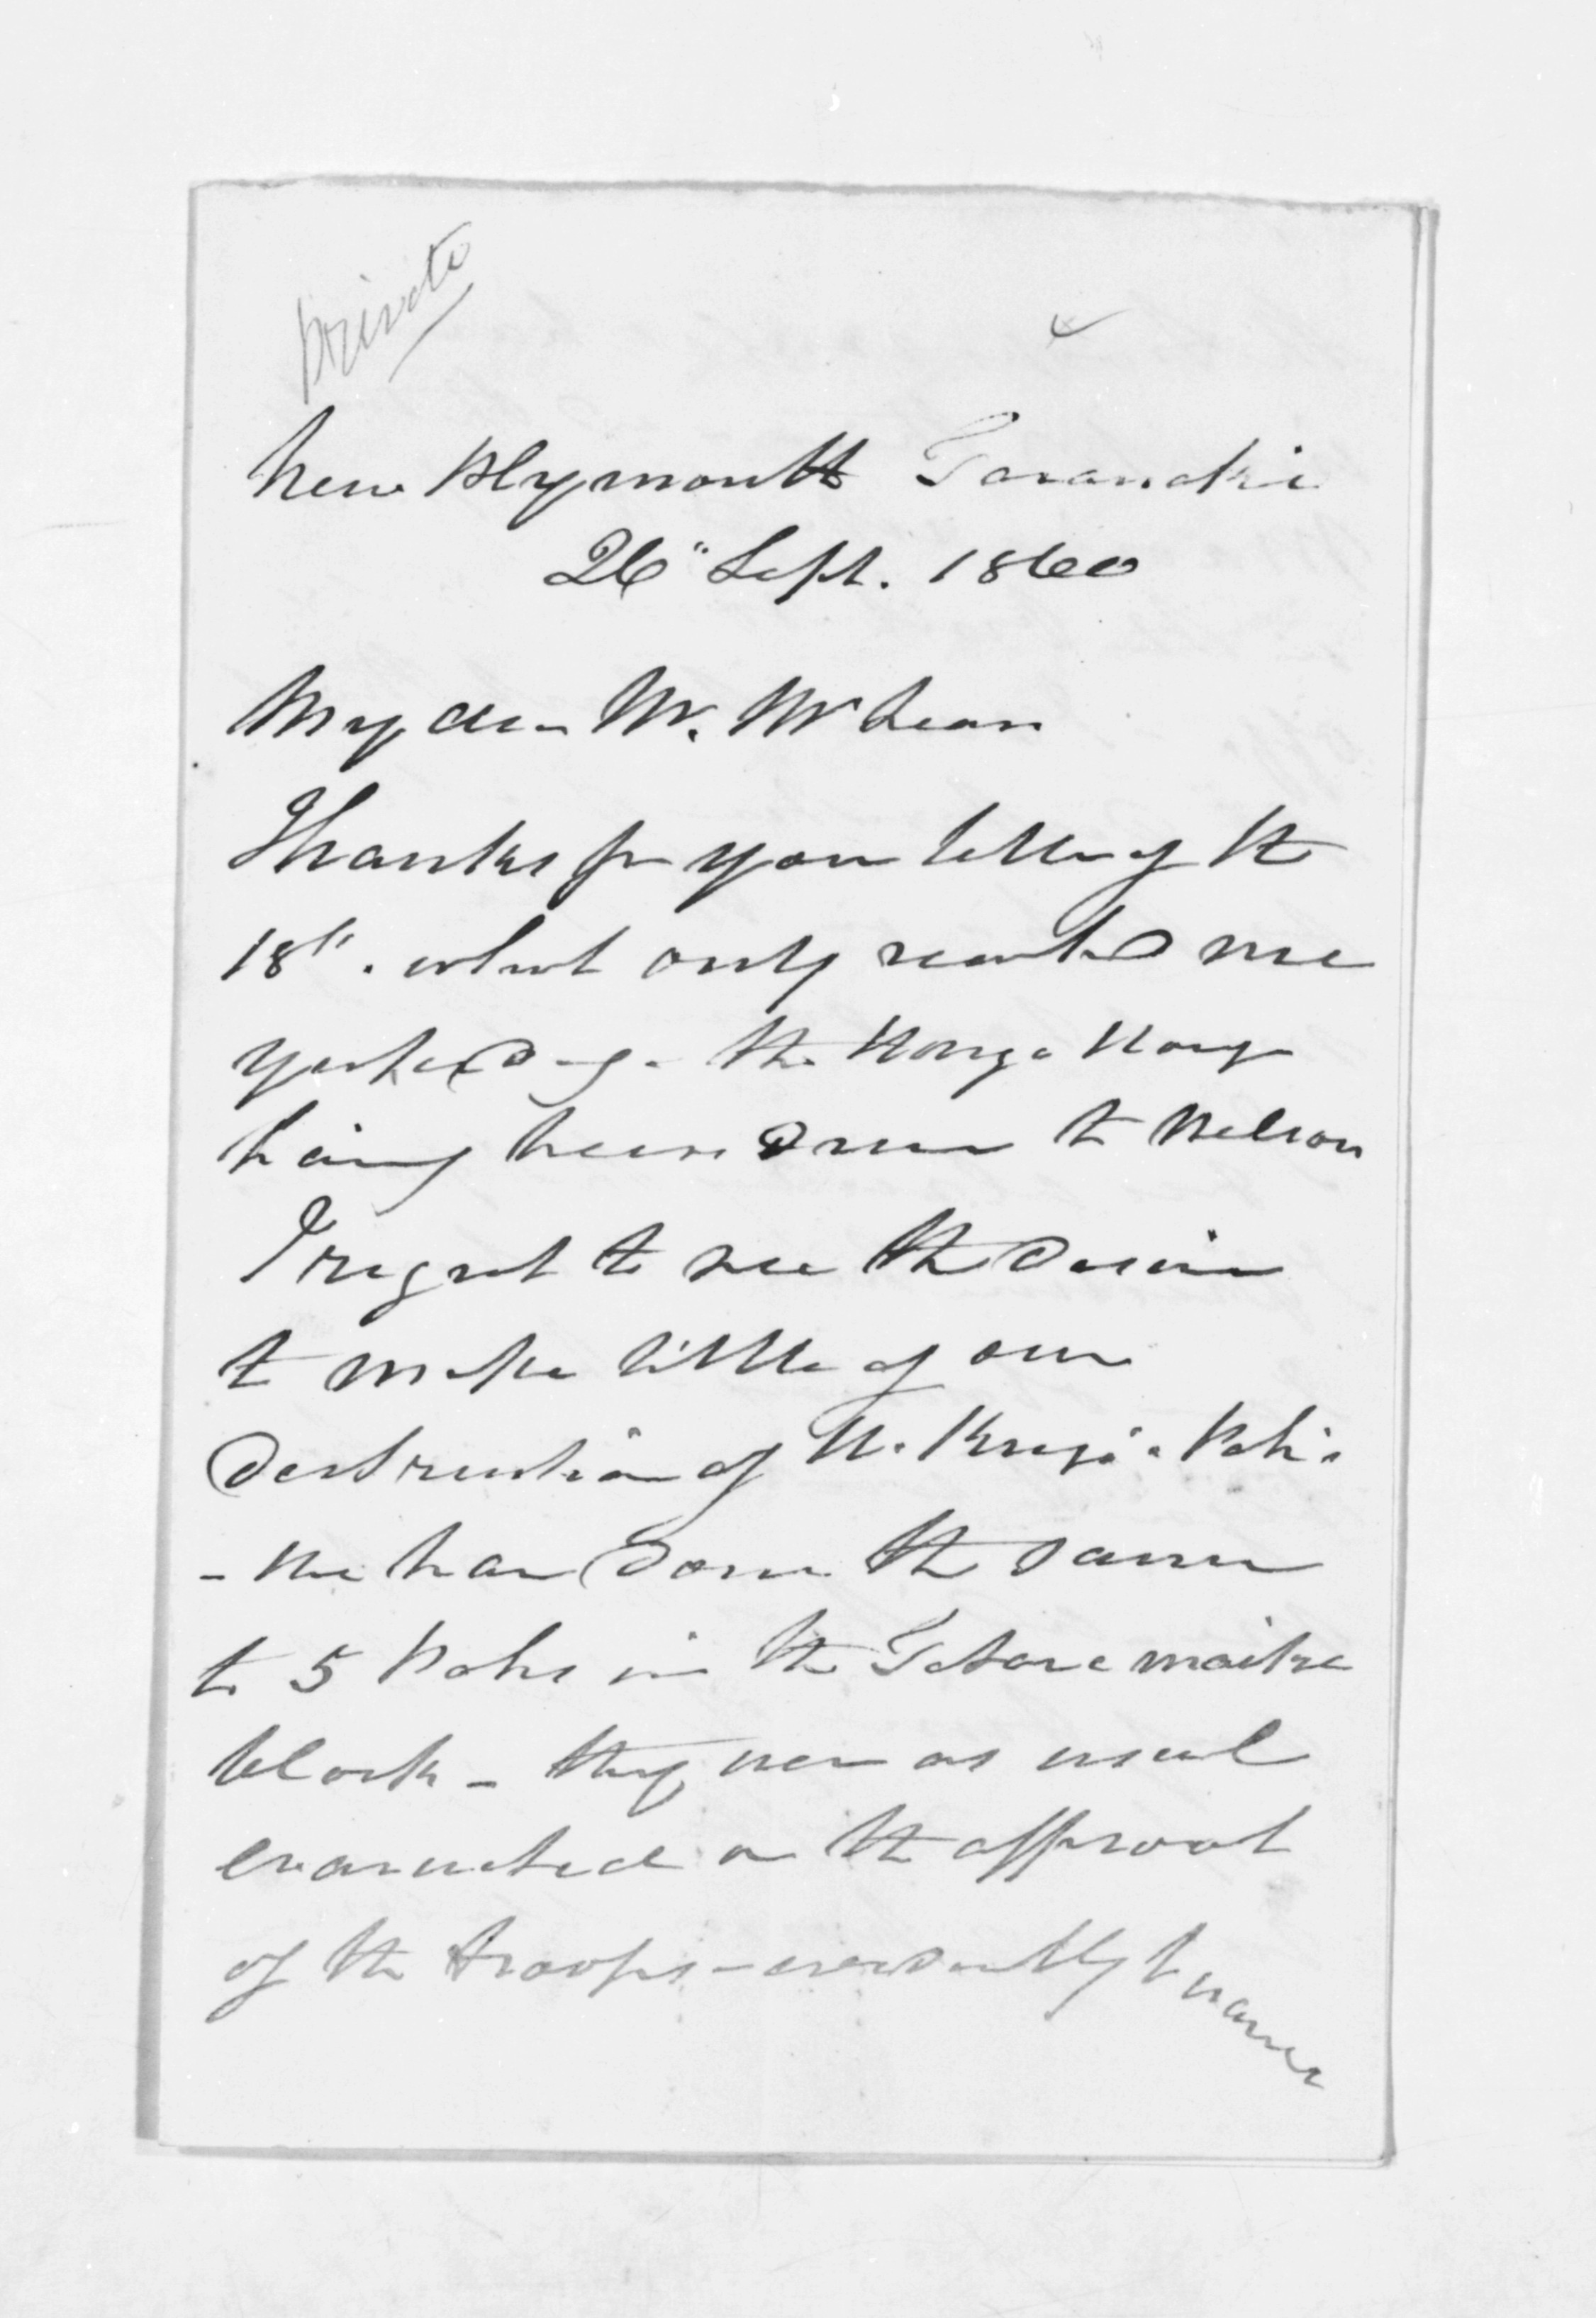 private
New Plymouth Taranaki
26" Sept. 1860
My dear Mr. McLean
Thanks for your letter of the
18". which only reached me
yesterday - the Wonga Wonga
having been down to Nelson
I regret to see the desire
to make little of our
destruction of W. Kingi's Pahs
- We have done the same
to 5 Pahs in the Tataraimaka
block - they were as usual
evacuated on the approach
of the troops - evidently to